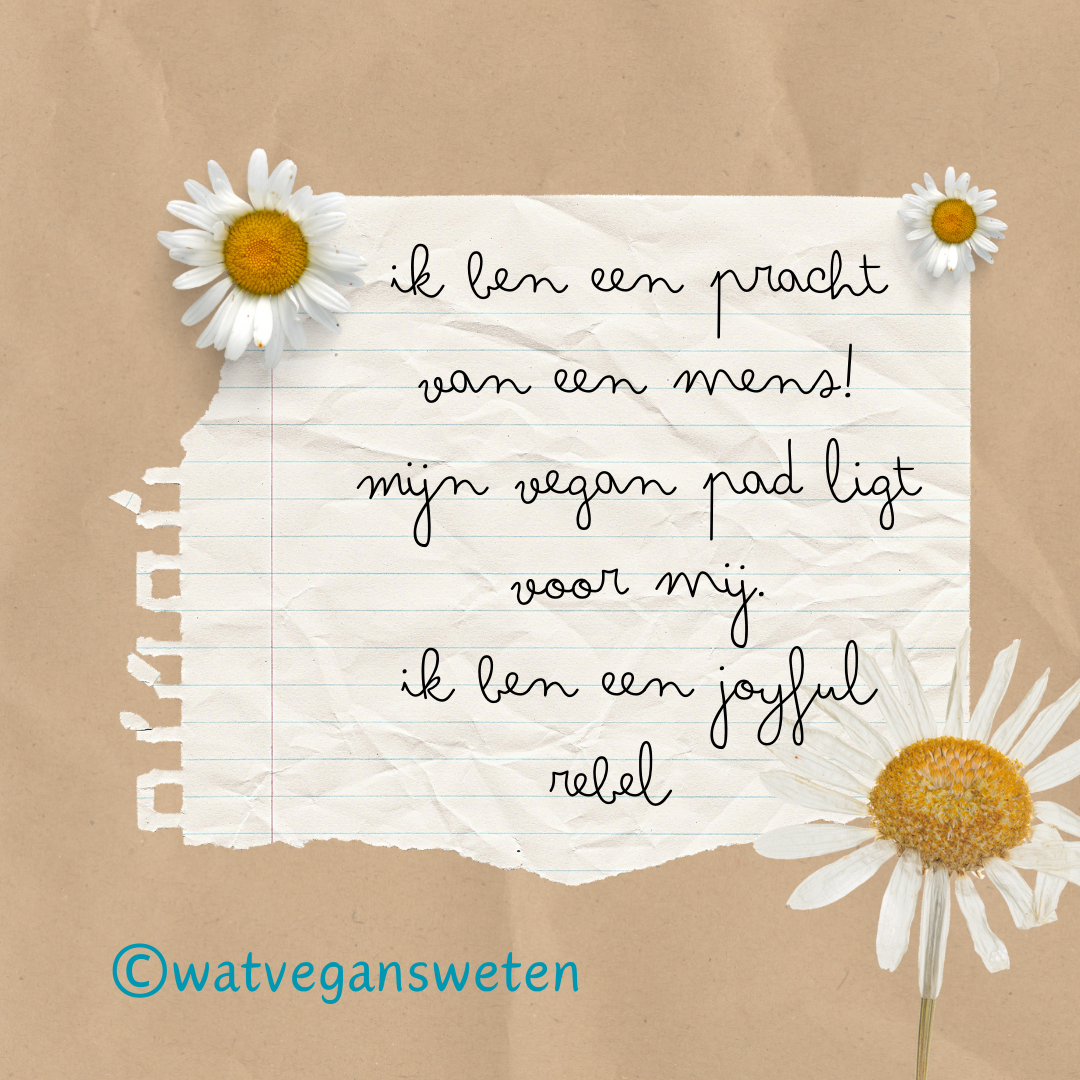 ik ben een pracht
van een mens!
mijn vegan pad ligt
voor mij.
ik ben een joyful
rebel
©watvegansweten